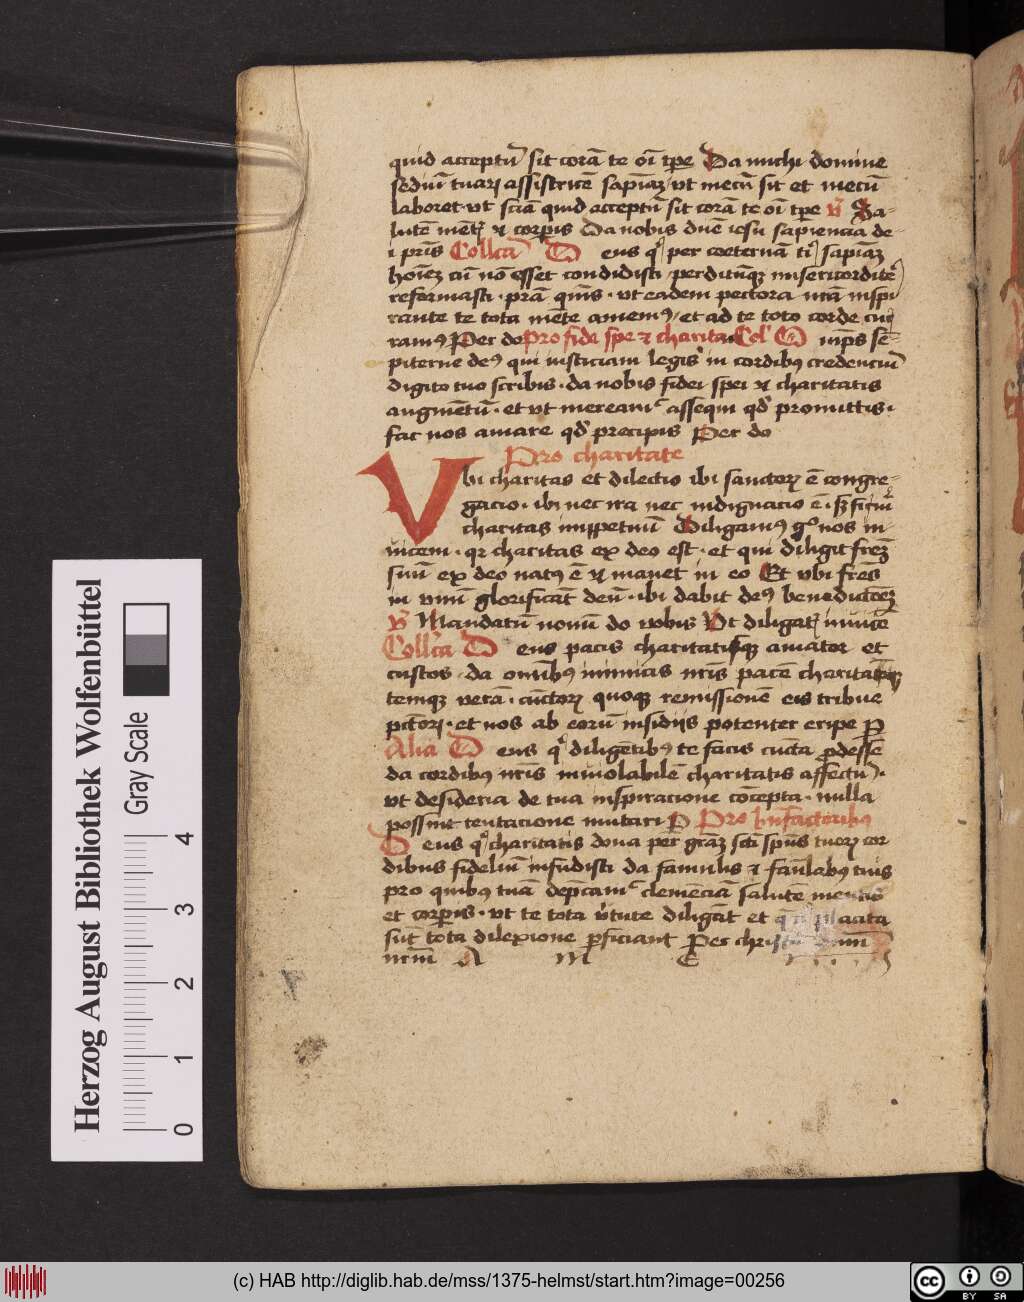 quid acceptū sit corā te oī tp̄e Da michi domine
sediū tuarꝝ assistricē sapīaꝫ vt mecū sit et mecū
laboret vt sciā quid acceptū sit corā te oī tp̄e v̄ Sa-
lutē mētꝭ ⁊ corꝑis Da nobis dn̄e iesu sapiencia de-
i pr̄is Collcā Deus qͥ per coeternā tͥ sapīaꝫ
hoīeꝫ cū nō esset condidisti perditūqꝫ misericorditer
reformasti · p̄ra q̄ms · vt eadem pectora nr̄a inspi
rante te tota mēte amemꝰ et ad te toto corde cur
ramꝰ Per do Pro fide spe ⁊ charitate Colͨ Omp̄s sē-
piterne deꝰ qui iusticiam legis in cordibꝰ credenciū
digito tuo scribis · da nobis fidei spei ⁊ charitatis
augmētū · et vt mereamͬ assequi qd̄ promittis ·
fac nos amare qd̄ precipis Per do
Pro charitate
Vbi charitas et dilectio ibi sanctorꝝ ē congre-
gacio · ibi nec ira nec indignacio ē · sꝫ firma
charitas imꝑpetuū Diligamꝰ gͦ nos in-
uicem · qꝛ charitas ex deo est · et qui diligit frēꝫ
suū ex deo natꝰ ē ⁊ manet in eo Et vbi frēs
in vnū glorificāt deū · ibi dabit deꝰ benedictōeꝫ
v̄ Mandatū nouū do vobis Vt diligatꝭ inuicē
Collcā Deus pacis charitatisqꝫ amator et
custos · da omībꝰ inimicis nr̄is pacē charita-
temqꝫ verā · cūctorꝝ quoqꝫ remissionē eis tribue
pctōrꝝ · et nos ab eorū insidiis potenter eripe P̄
Alia Deus qͥ diligētibꝰ te facis cūcta ꝓdesse
da cordibꝰ nr̄is inuiolabilē charitatis affectū ·
vt desideria de tua inspiracione cōcepta · nulla
possint tentacione mutari P̄ Pro bn̄factoribꝰ
Deus qͥ charitatis dona per grāꝫ sc̄ti sp̄us tuorꝝ cor
dibus fideliū infudisti da famulis ⁊ famlabꝰ tuis
pro quibꝰ tuā dep̄camͬ clemēciā salutē mentis
et corꝑis · vt te tota v̄tute diligāt et q̄ tͥ placita
sūt tota dilexione ꝑficiant Per christū dnm̄
nrm̄ A M E N
Herzog August Bibliothek Wolfenbüttel
Gray Scale
0 1 2 3 4
(c) HAB http://diglib.hab.de/mss/1375-helmst/start.htm?image=00256
cc BY SA